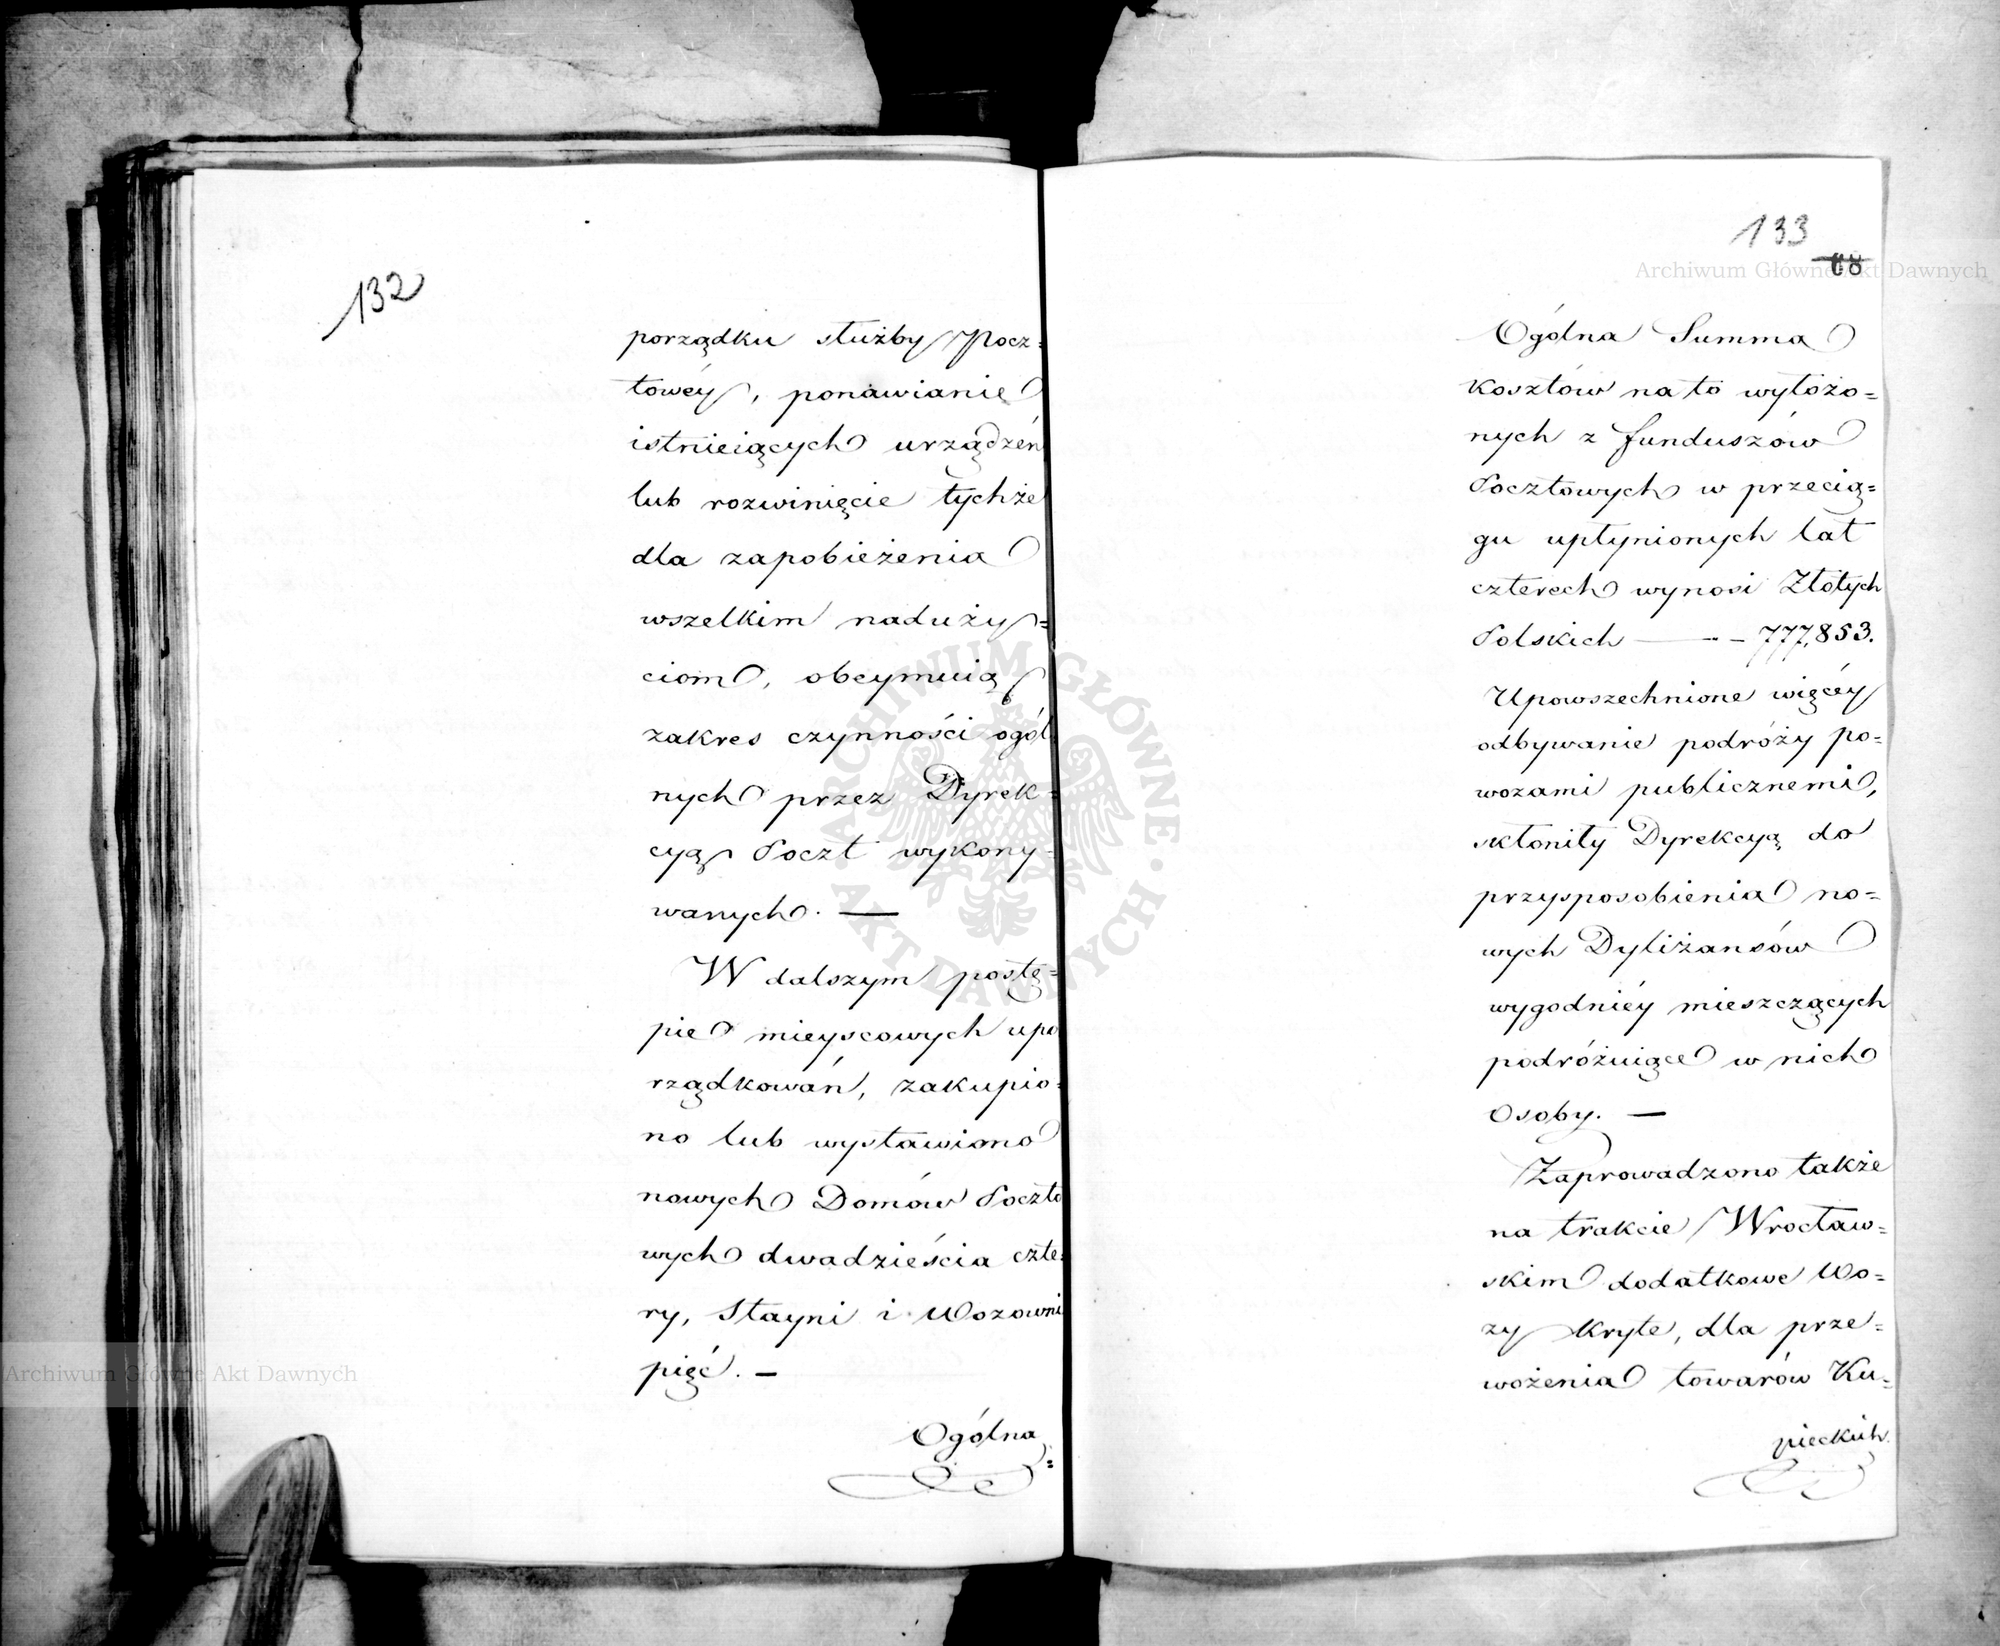 132
porządku służby Pocz=
towéy, ponawianie
istnieiących urządzeń
lub rozwinięcie tychże
dla zapobieżenia
wszelkim naduży=
ciom, obeymuią
zakres czynności ogól
nych przez Dyrek=
cyą Poczt wykony=
wanych. —
W dalszym postę=
pie mieyscowych upo
rządkowań, zakupio=
no lub wystawiono
nowych Domów Poczto
wych dwadzieścia czte=
ry, Stayni i Wozowni
pięć. —
Ogólna
133
68
Ogólna Summa
kosztów na to wyłożo=
nych z funduszów
Pocztowych w przecią=
gu upłynionych lat
czterech wynosi Złotych
Polskich — - - 777,853.
Upowszechnione więcéy
odbywanie podróży po=
wozami publicznemi,
skłoniły Dyrekcyą do
przysposobienia no=
wych Dyliżansów
wygodniéy mieszczących
podróżuiące w nich
Osoby. —
Zaprowadzono także
na trakcie Wrocław=
skim dodatkowe Wo=
zy kryte, dla prze=
wożenia towarów Ku=
pieckich
Archiwum Główne Akt Dawnych
ARCHIWUM GŁÓWNE · AKT DAWNYCH ·
Archiwum Główne Akt Dawnych